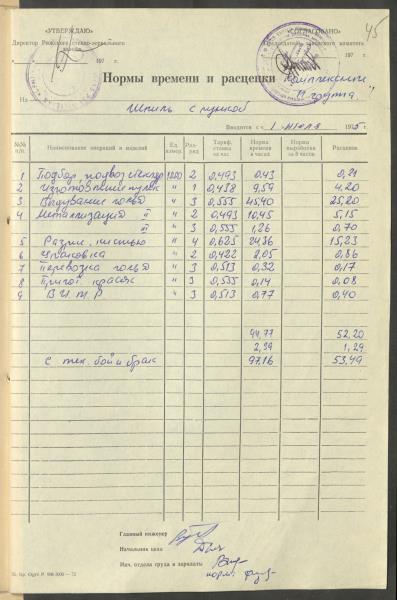 45
«УТВЕРЖДАЮ»
«СОГЛАСОВАНО»
Директор Рижского
Председатель комитета
197 г.
197 г.
Нормы времени и расценки комплексные
II группа.
На Шпиль с пулькой
Вводятся с « 1 июля 1975 г.
№№ п/п
Наименование операций и изделий
Ед. измер.
Раз-ряд
Тариф. ставка за час
Норма времени в часах
Норма выработки за 8 часов
Расценки
1 Подбор, подвоз 1000 2 0,493 0.43 0,21
2 Изготовление пулек " 1 0,438 9,59 4.20
3 Выдувание " 3 0,555 45,40 25,20
4 Металлизация " " 2 0,493 10,45 5,15
" 3 0,555 1,26 0,70
5 Разпис. кистью " 4 0,625 24,36 15,23
6 Упаковка " 2 0,422 2,05 0,86
7 Перевозка " 3 0,513 0,32 0,17
8 Пригот. красок " 3 0,555 0,14 0,08
9 В И Т Р " 3 0,513 0,77 0,40
94,77 52,20
2,39 1,29
с тех. бой и брак 97,16 53,49
Главный инженер
Начальник цеха
Нач. отдела труда и зарплаты